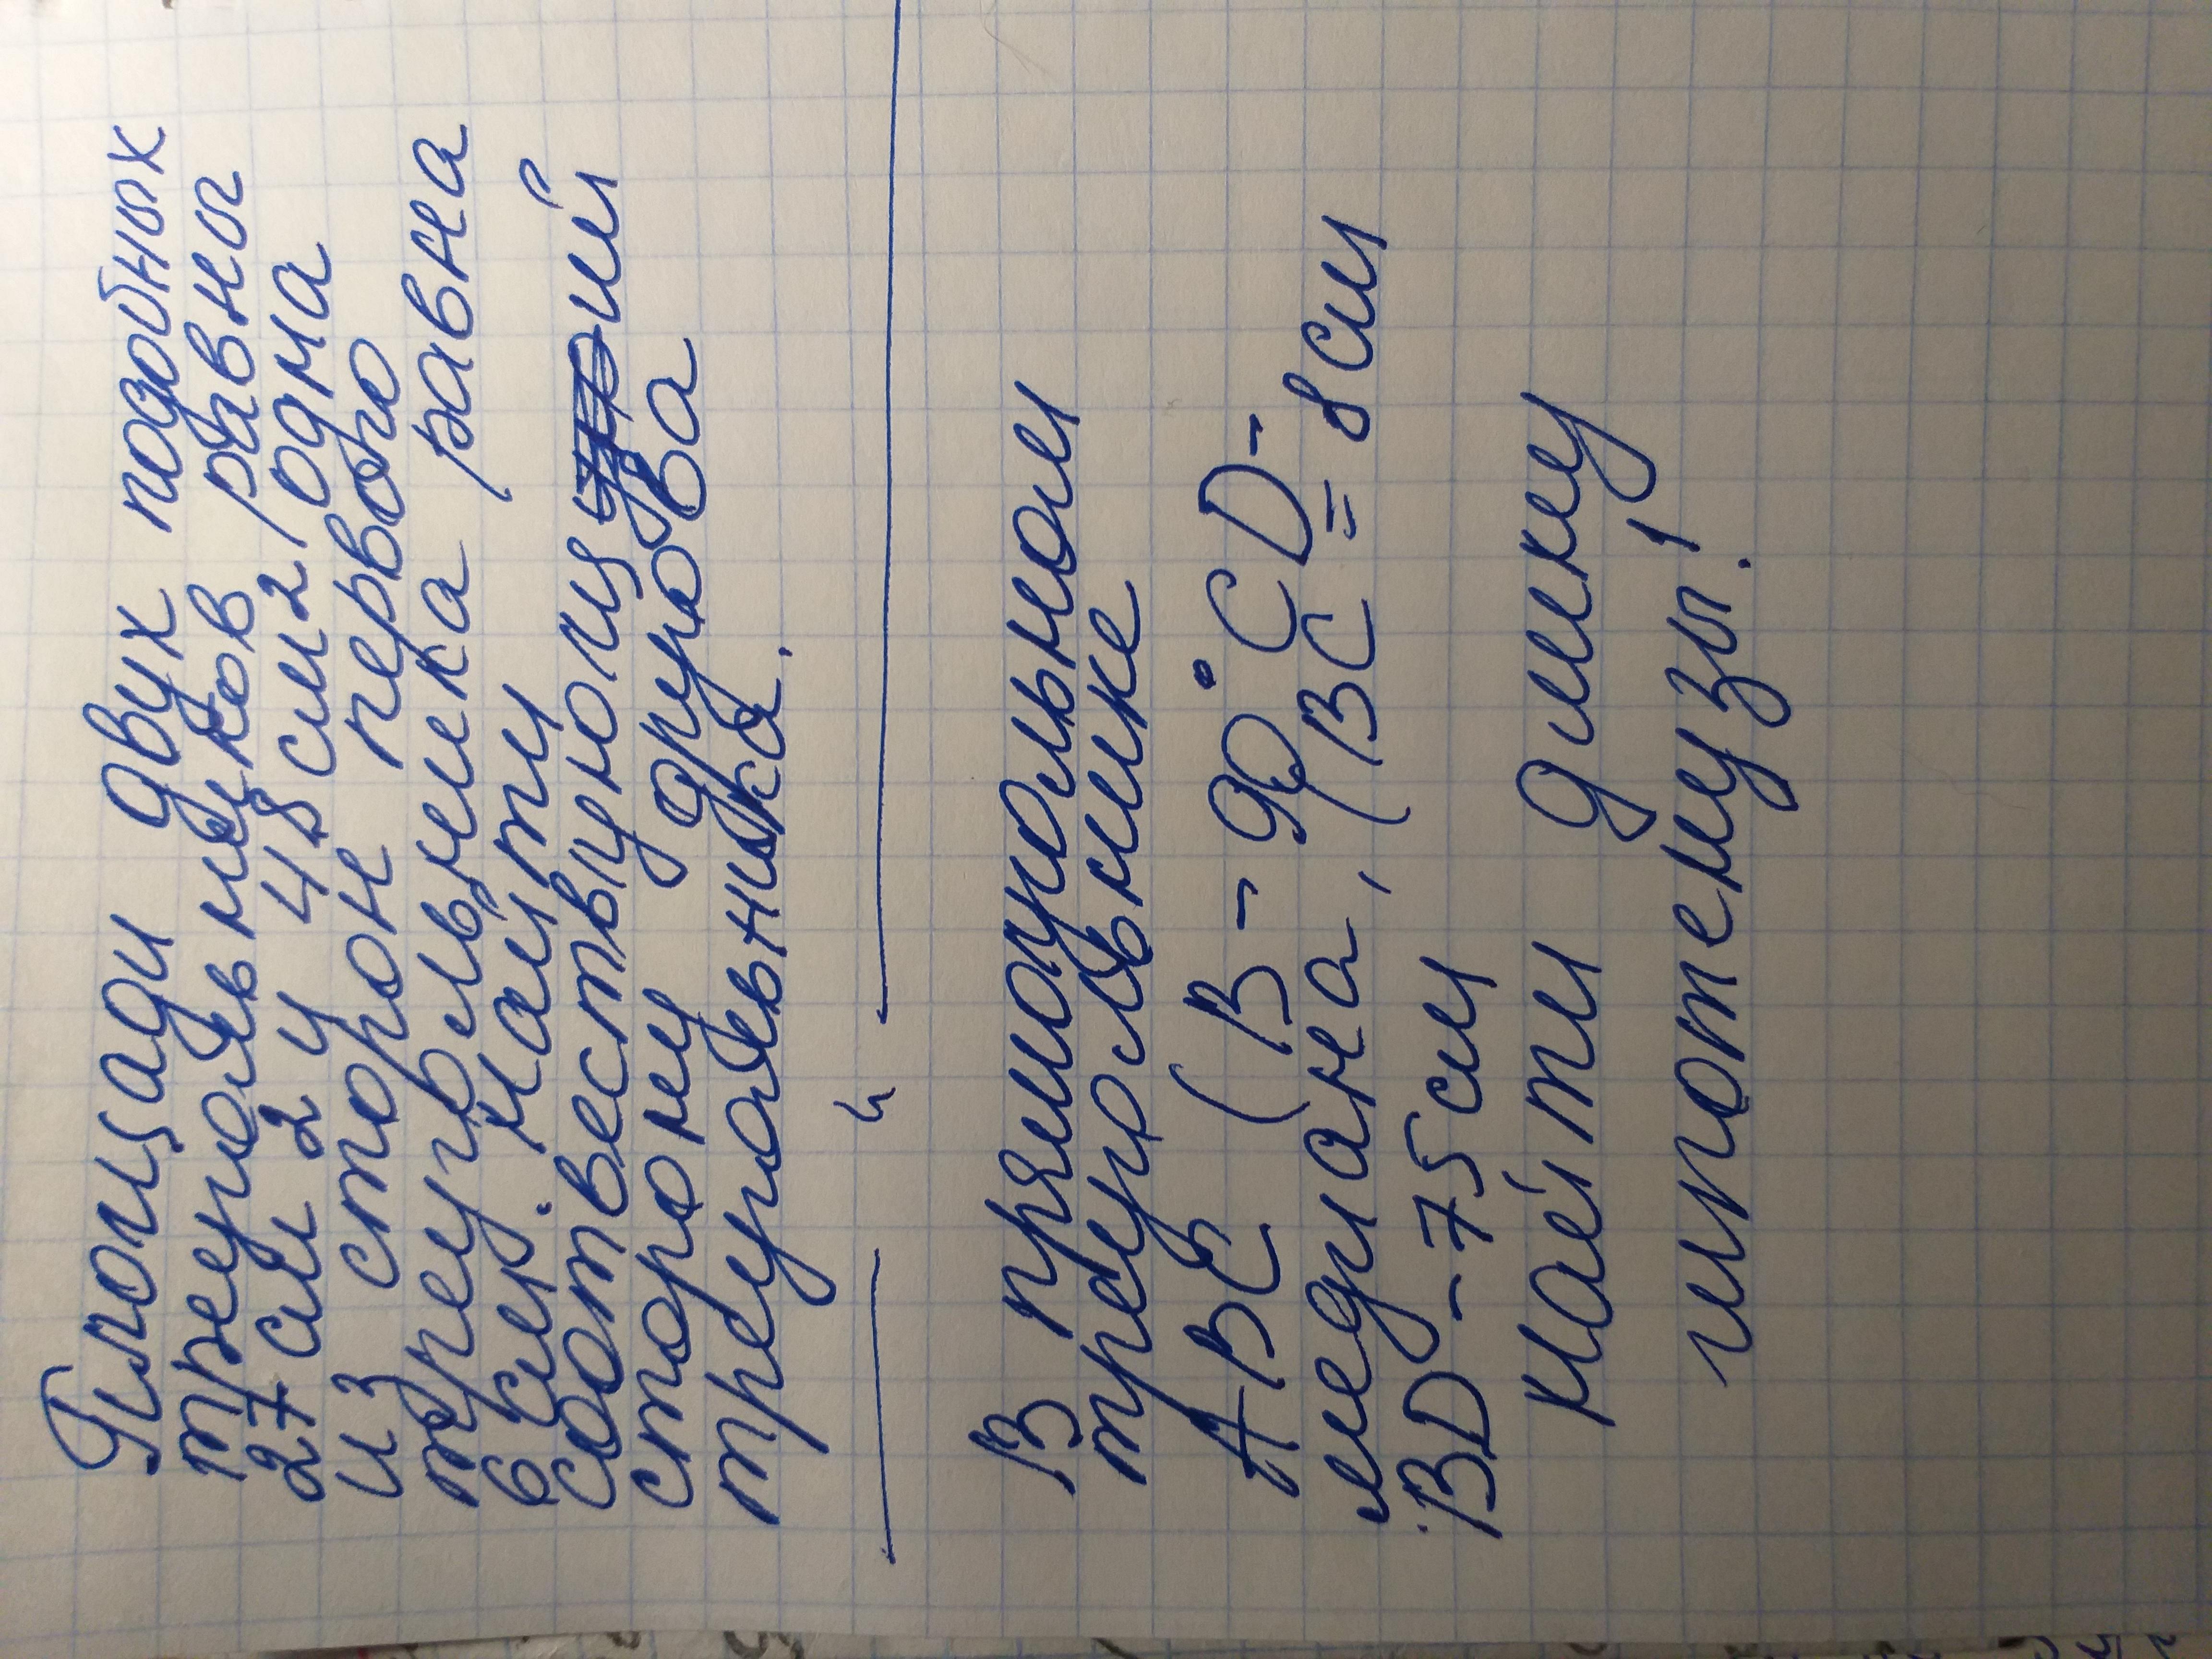 Площади двух подобных
треугольников равны
27 см 2 и 48 см 2, одна
из сторон первого
треугольника равна
6 см. Найти
сответствующий
сторону другова
треугольника.
4
В прямоугольном
треугольнике
ABC (B - 90° CD -
медиана, (BC = 8 см
BD - 75 см
Найти длину
гипотенузы!